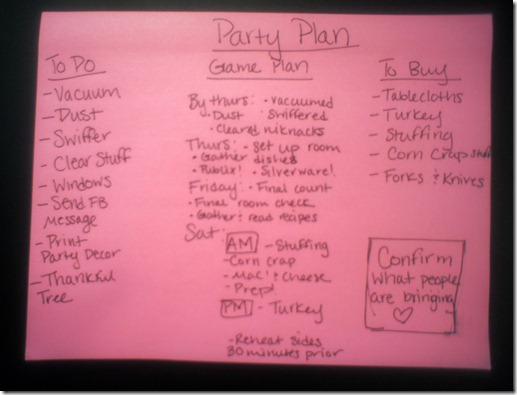 Party Plan
To Do
- Vacuum
- Dust
- Swiffer
- Clear Stuff
- Windows
- Send FB
Message
- Print
Party Decor
- Thankful
Tree
Game Plan
By thurs: • vacuumed
• Dust • Swiffered
• Cleared niknacks
Thurs: • set up room
• Gather dishes
• Publix! • Silverware!
Friday: • Final count
• Final room check
• Gather & read recipes
Sat: AM - Stuffing
- Corn crap
- Mac! & Cheese
- Prep!
PM - Turkey
- Reheat sides
30 minutes prior
To Buy
- Tablecloths
- Turkey
- Stuffing
- Corn Crap stuff
- Forks & Knives
Confirm
what people
are bringing
♡